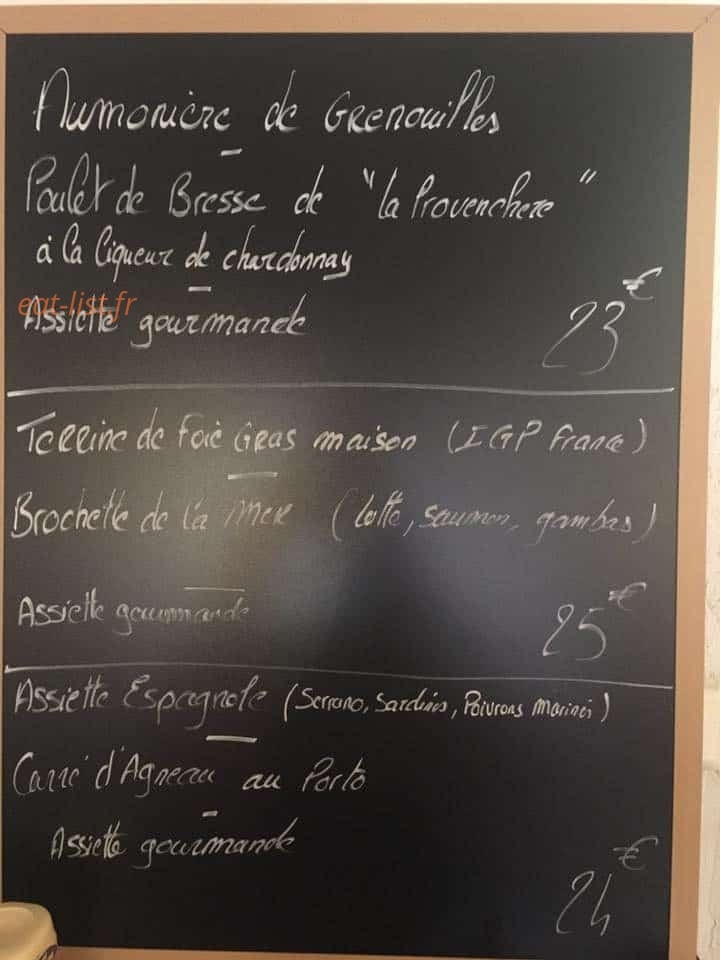 Aumonière de Grenouilles
Poulet de Bresse de "la Provenchere"
à la liqueur de chardonnay
eat-list.fr
Assiette gourmande 23€
Terrine de Foie Gras maison (IGP France)
Brochette de la Mer (lotte, saumon, gambas)
Assiette gourmande 25€
Assiette Espagnole (Serrano, Sardines, Poivrons Marinés)
Carré d'Agneau au Porto
Assiette gourmande
24€